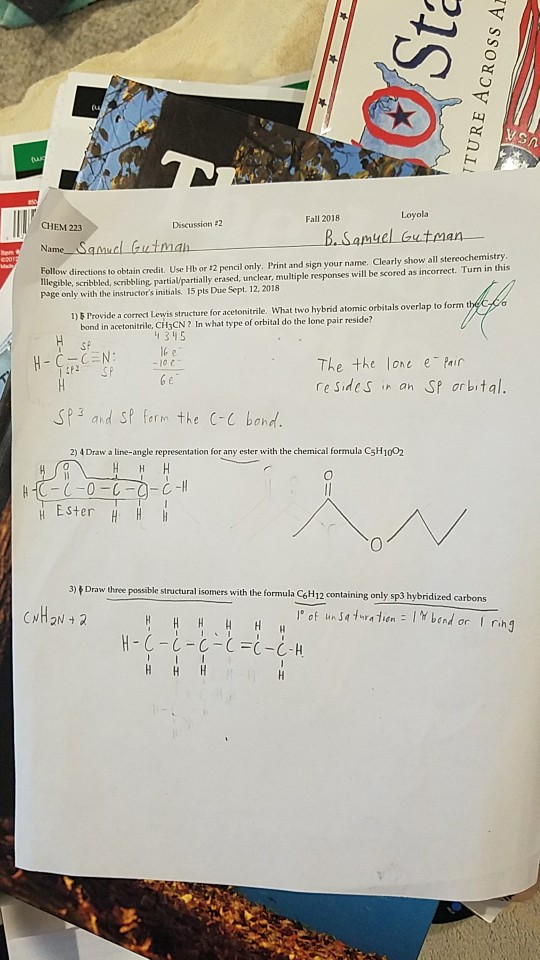 Sta
TURE ACROSS A
USA
CHEM 223 Discussion #2 Fall 2018 Loyola
Name Samuel Gutman B. Samuel Gutman
Follow directions to obtain credit. Use Hb or #2 pencil only. Print and sign your name. Clearly show all stereochemistry.
Illegible, scribbled, scribbling, partial/partially erased, unclear, multiple responses will be scored as incorrect. Turn in this
page only with the instructor's initials. 15 pts Due Sept. 12, 2018
1) 5 Provide a correct Lewis structure for acetonitrile. What two hybrid atomic orbitals overlap to form the C-C σ
bond in acetonitrile, CH3CN ? In what type of orbital do the lone pair reside?
4 3 4 5
H sp 16 e-
H - C - C ≡ N: -10 e-
sp3 sp 6 e-
H
The the lone e- Pair
resides in an SP orbital.
SP3 and SP form the C-C bond.
2) 4 Draw a line-angle representation for any ester with the chemical formula C5H10O2
H O H H H
H-C-C-O-C-C-C-H
H Ester H H H
O
O
3) 6 Draw three possible structural isomers with the formula C6H12 containing only sp3 hybridized carbons
CNH2N+2 1° of unsaturation = 1 π bond or 1 ring
H H H H H H
H-C-C-C-C=C-C-H
H H H H